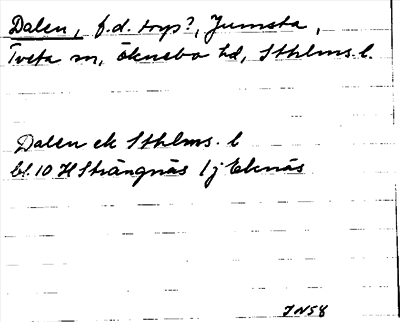 Dalen, f.d. torp?, Jumsta,
Tveta sn, Öknebo hd, Sthlms. l.
Dalen ek Sthlms. l
bl. 10 H Strängnäs 1 j Eknäs
JNSY